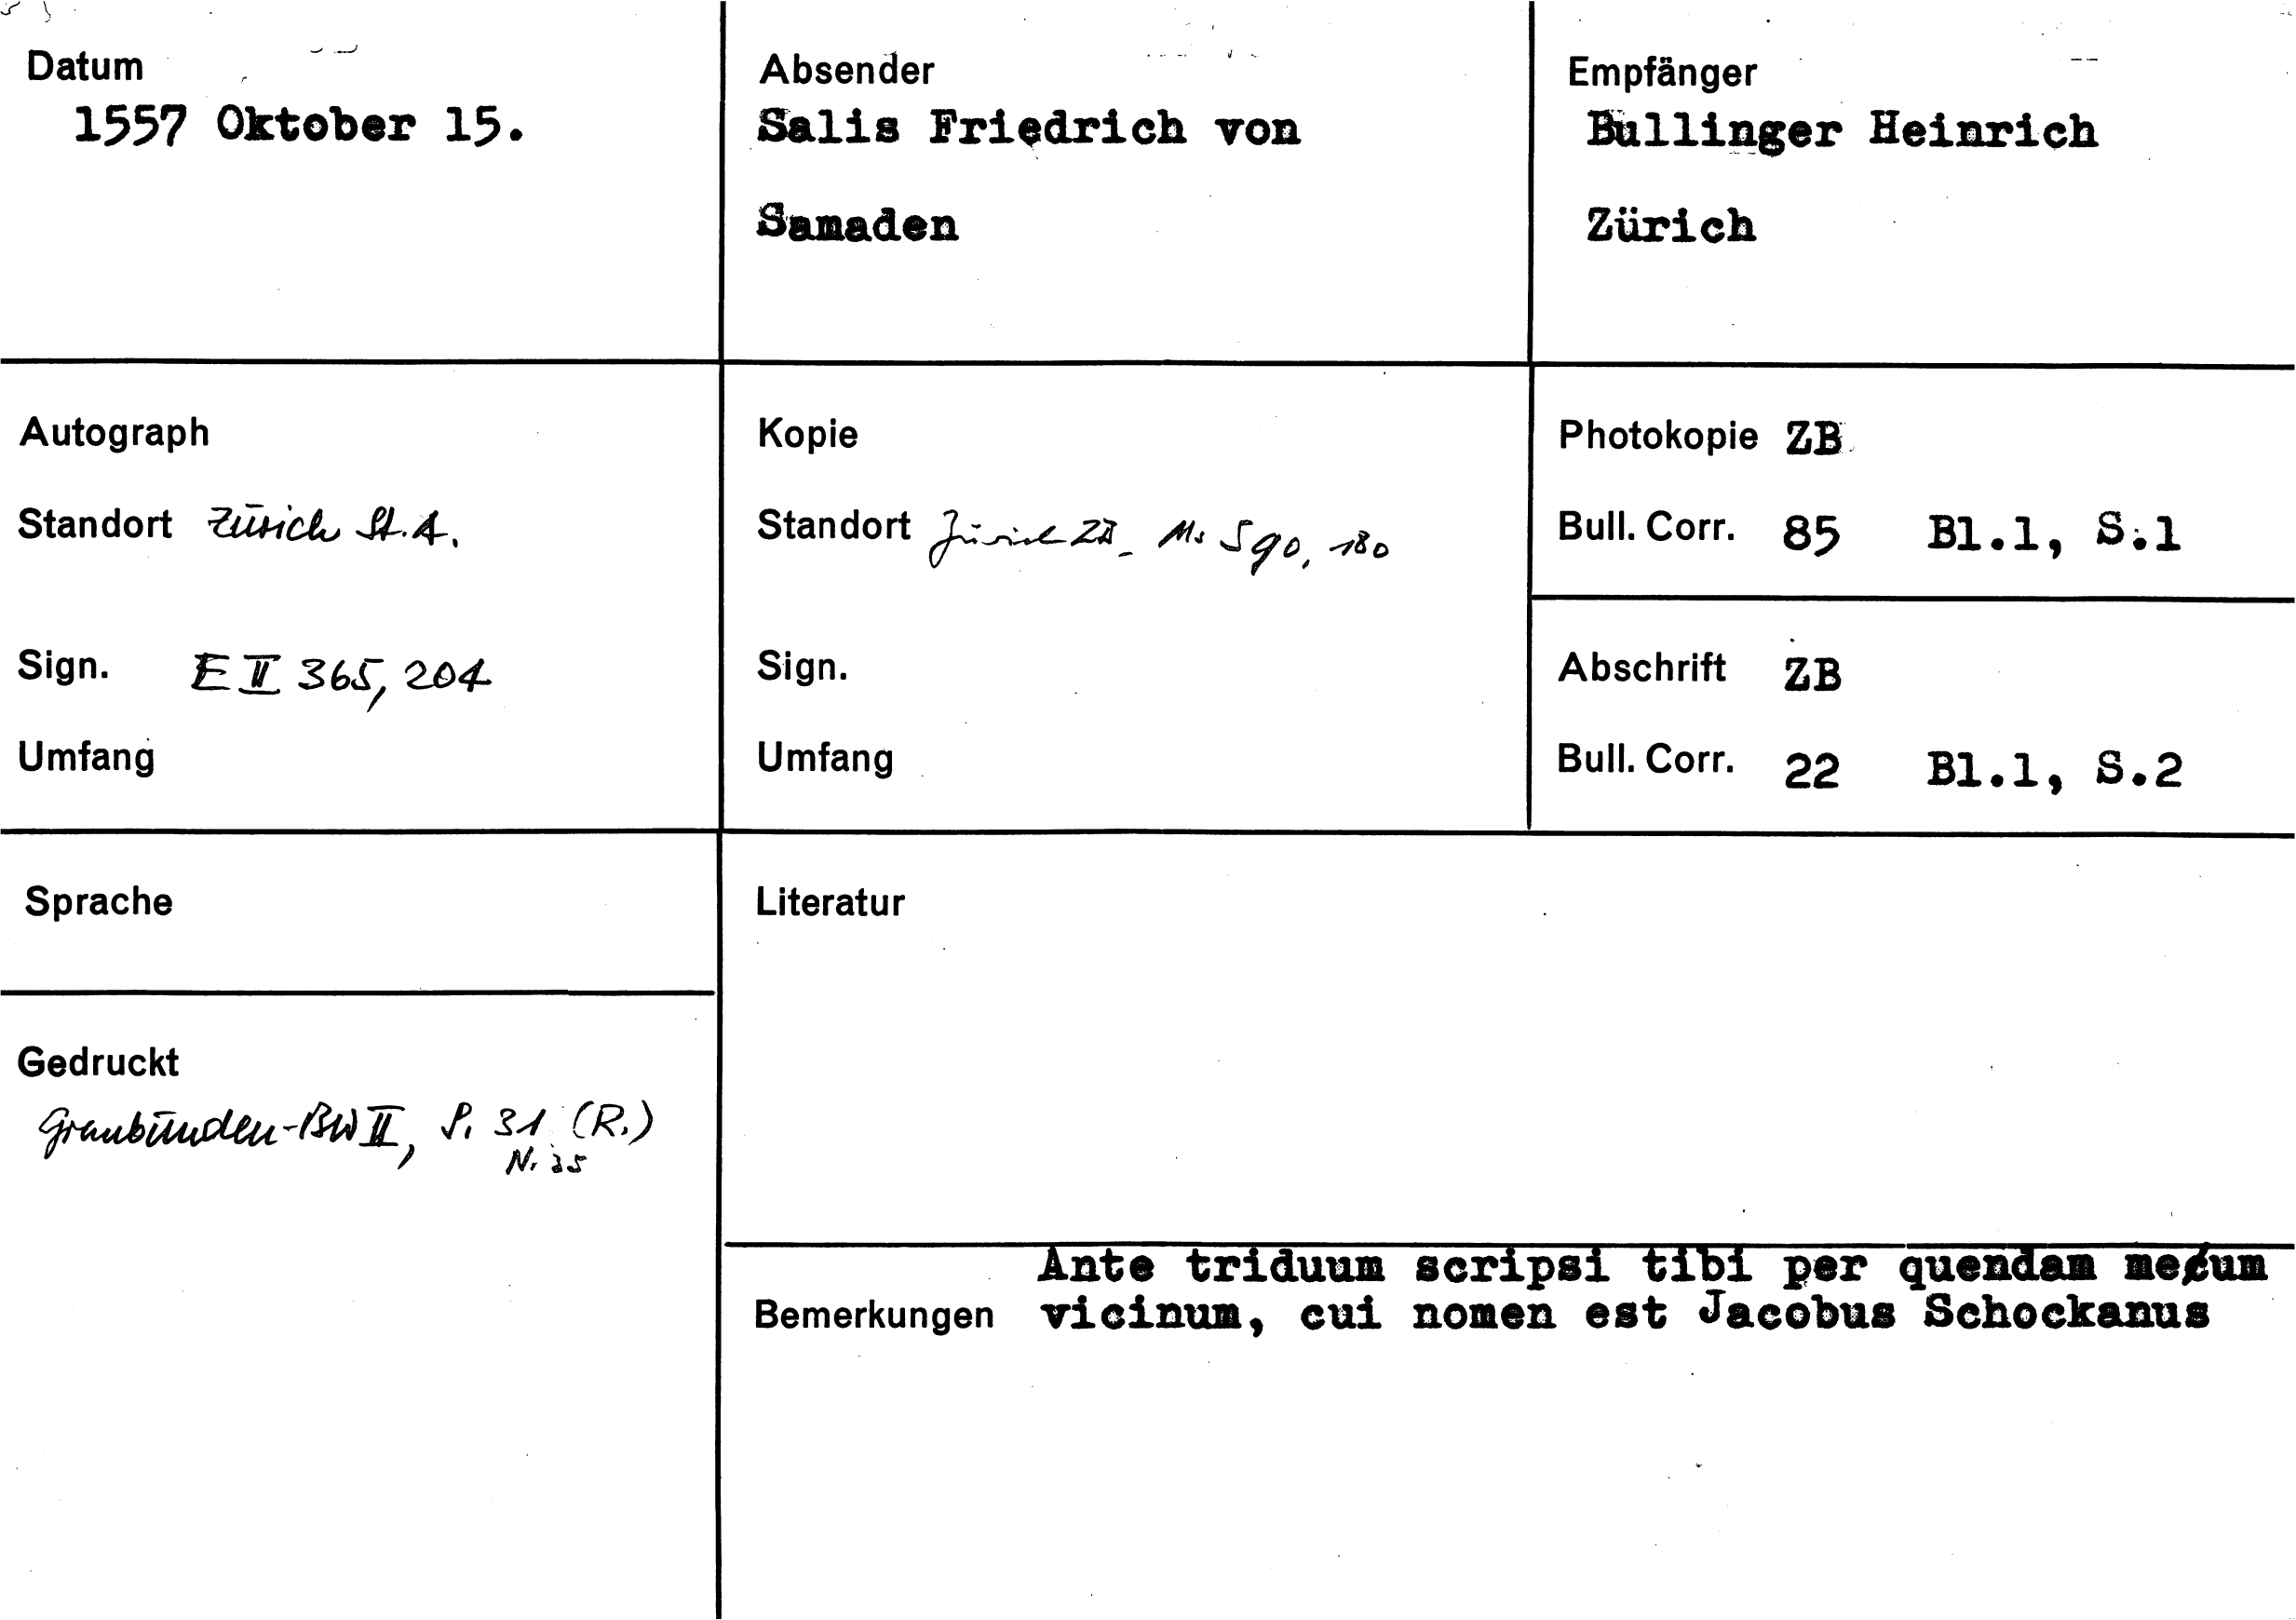 Datum
1557 Oktober 15.
Absender
Salis Friedrich von
Samaden
Empfänger
Bullinger Heinrich
Zürich
Autograph
Standort Zürich St.A.
Sign. E II 365, 204
Umfang
Kopie
Standort Zürich ZB Ms S 90, 180
Sign.
Umfang
Photokopie ZB
Bull. Corr. 85 Bl.1, S.1
Abschrift ZB
Bull. Corr. 22 Bl.1, S.2
Sprache
Gedruckt
Graubünden-BW II, S. 31 (R.)
Literatur
Ante triduum scripsi tibi per quendam
Bemerkungen vicinum, cui nomen est Jacobus Schockanus